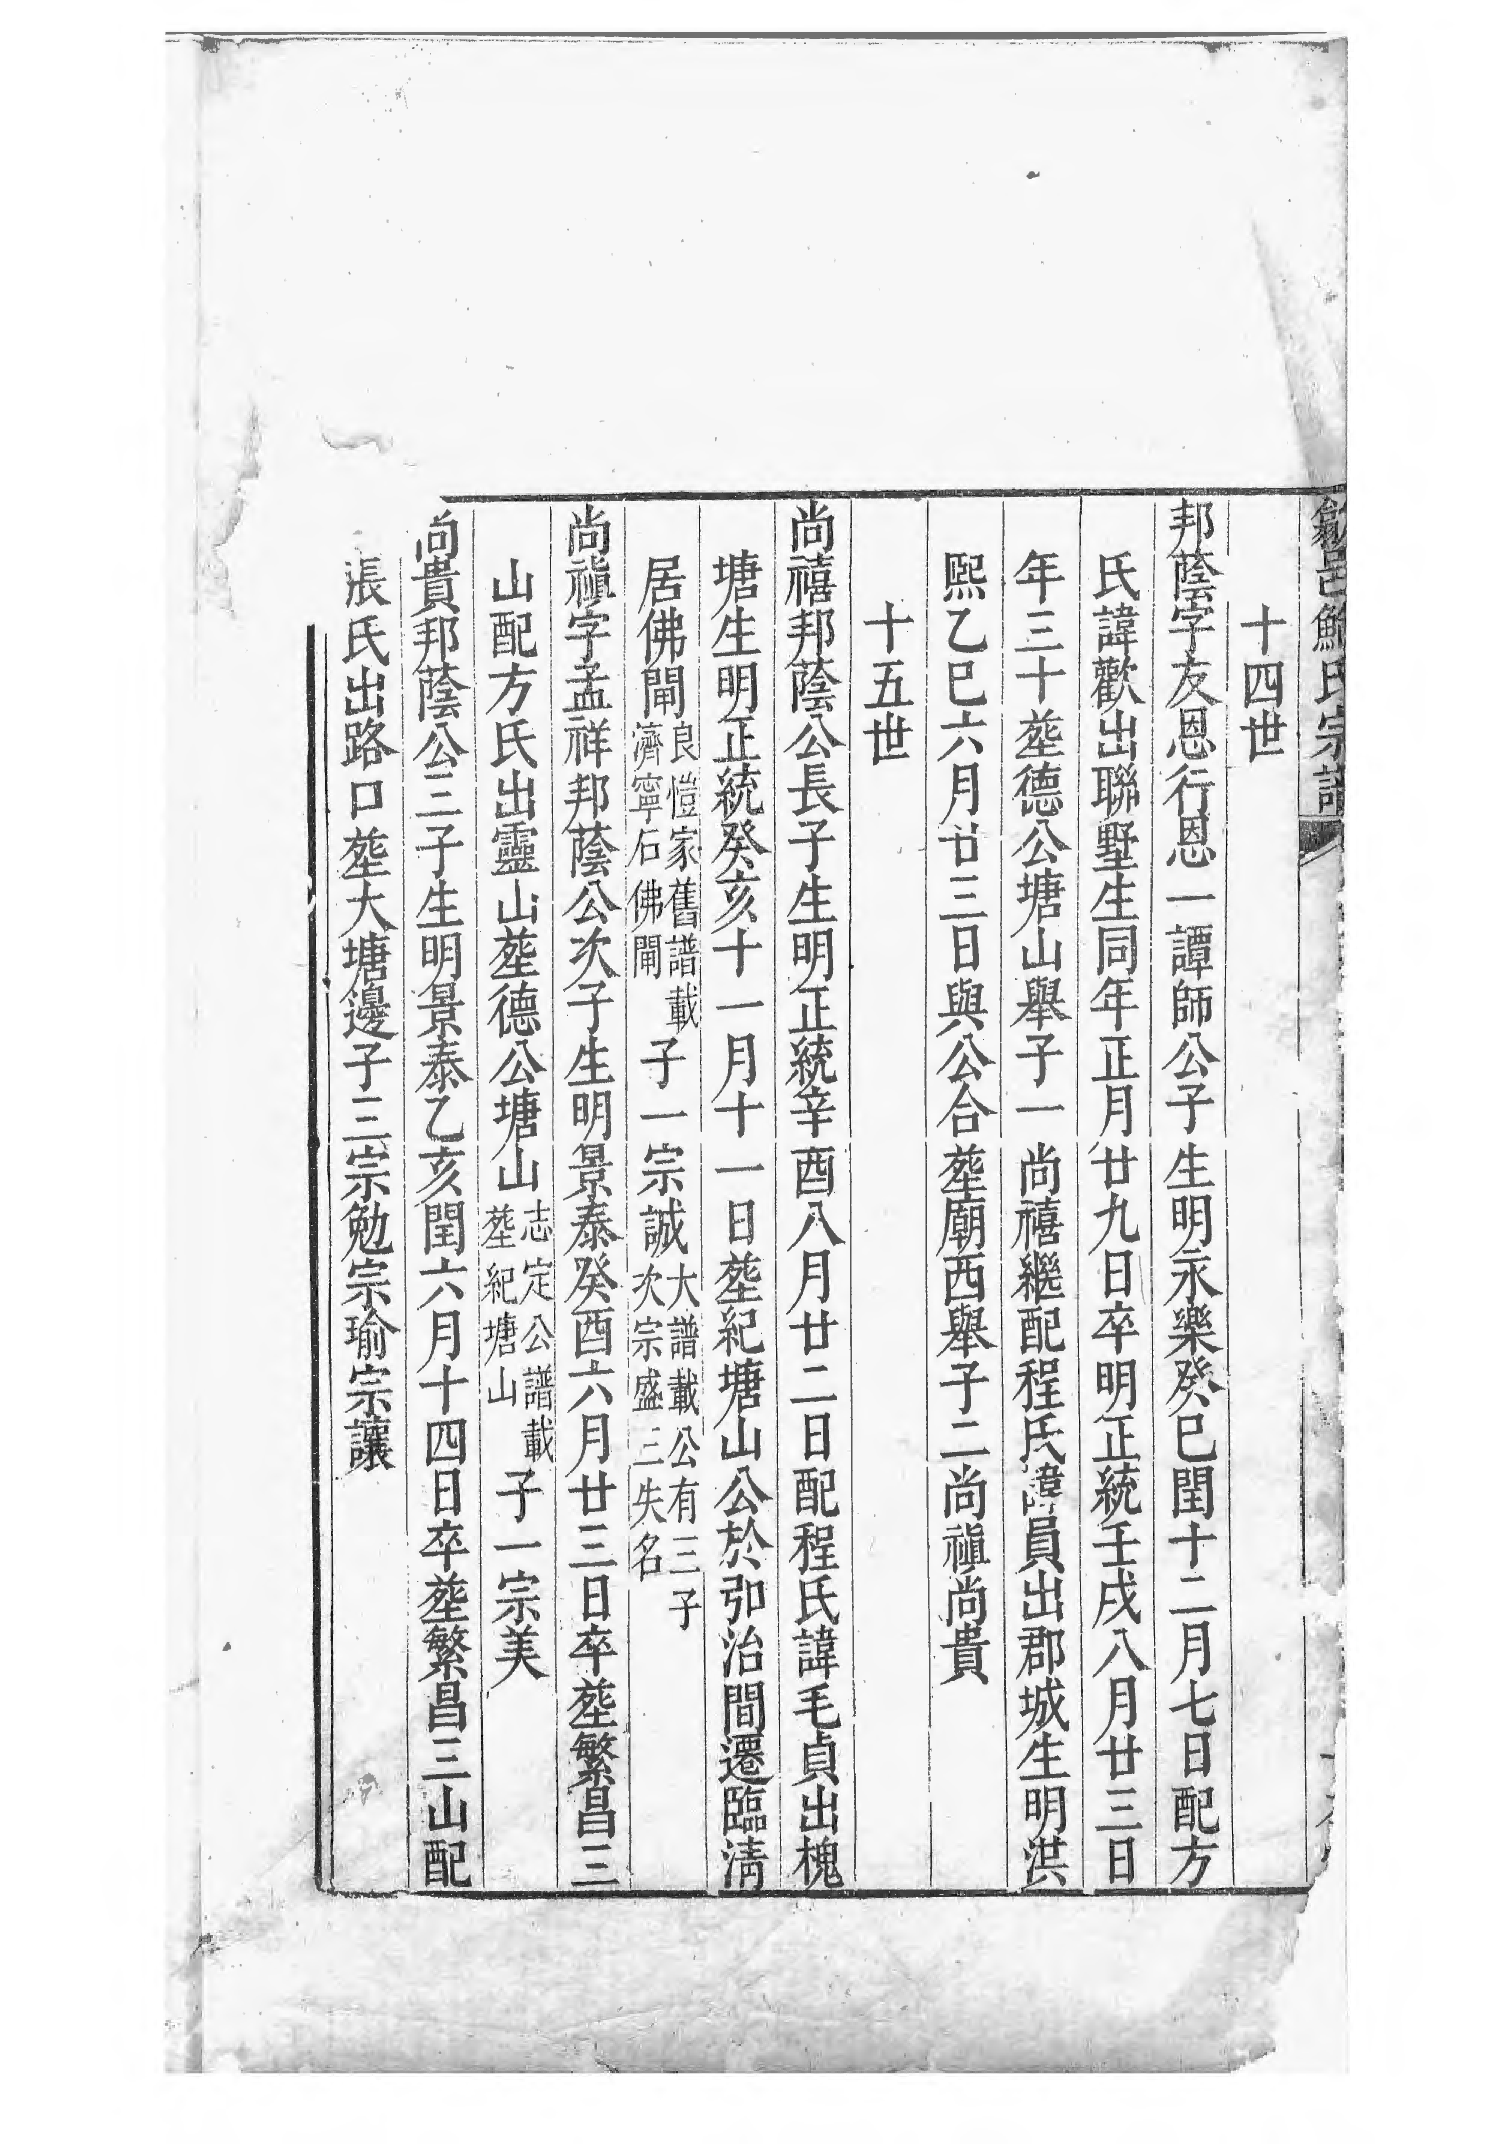 歙邑鮑氏宗譜
十四世
邦蔭字友恩行恩一譚師公子生明永樂癸巳閏十二月七日配方
氏諱歡出聯墅生同年正月廿九日卒明正統壬戌八月廿三日
年三十塟德公塘山舉子一尚禧繼配程氏諱員出郡城生明洪
熙乙巳六月廿三日與公合塟廟西舉子二尚禛尚貴
十五世
尚禧邦蔭公長子生明正統辛酉八月廿二日配程氏諱毛貞出槐
塘生明正統癸亥十一月十一日塟紀塘山公於弘治間遷臨淸
居佛閘良愷家舊譜載濟寧石佛閘子一宗誠大譜載公有三子次宗盛三失名
尚禛字孟祥邦蔭公次子生明景泰癸酉六月廿三日卒塟繁昌三
山配方氏出靈山塟德公塘山志定公譜載塟紀塘山子一宗美
尚貴邦蔭公三子生明景泰乙亥閏六月十四日卒塟繁昌三山配
張氏出路口塟大塘邊子三宗勉宗瑜宗讓